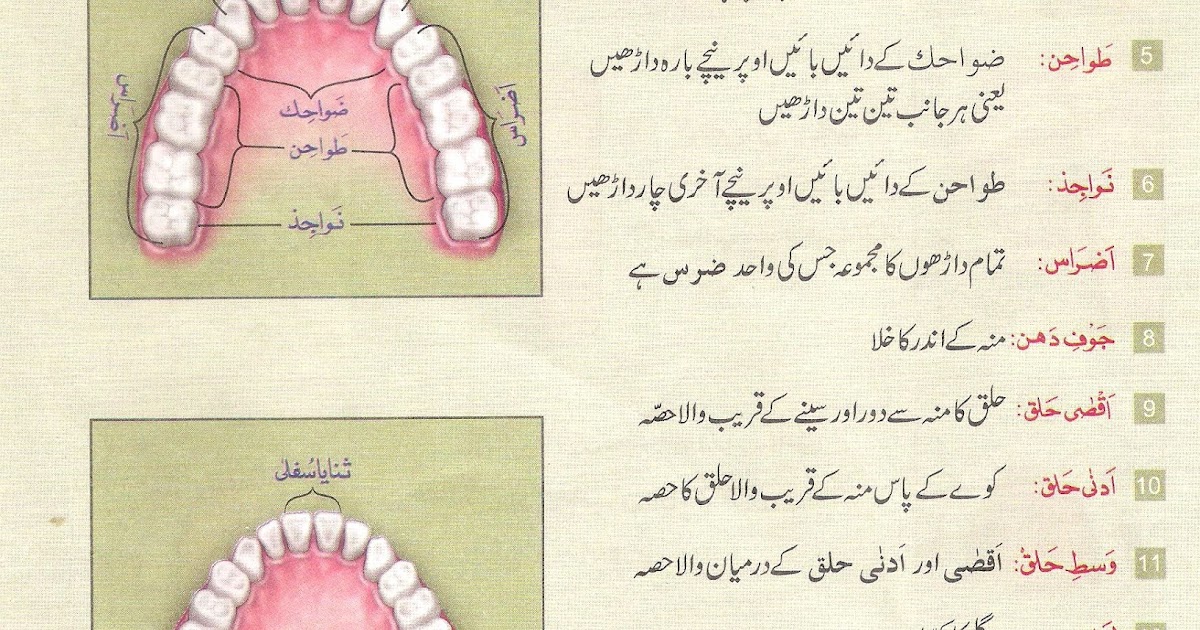 5 طَواحِن: ضواحك کے دائیں بائیں اوپر نیچے بارہ داڑھیں
یعنی ہر جانب تین تین داڑھیں
6 نَواجِذ: طواحن کے دائیں بائیں اوپر نیچے آخری چار داڑھیں
7 اَضرَاس: تمام داڑھوں کا مجموعہ جس کی واحد ضرس ہے
8 جَوْفِ دَهن: منہ کے اندر کا خلا
9 اَقْصٰی حَلق: حلق کا منہ سے دور اور سینے کے قریب والا حصّہ
10 اَدنٰی حَلق: کوے کے پاس منہ کے قریب والا حلق کا حصہ
11 وَسطِ حَلق: اَقصٰی اور اَدنٰی حلق کے درمیان والا حصہ
اَضرَاس
ضَواحِك
طَواحِن
نَواجِذ
اَضرَاس
ثنایا سُفلٰی